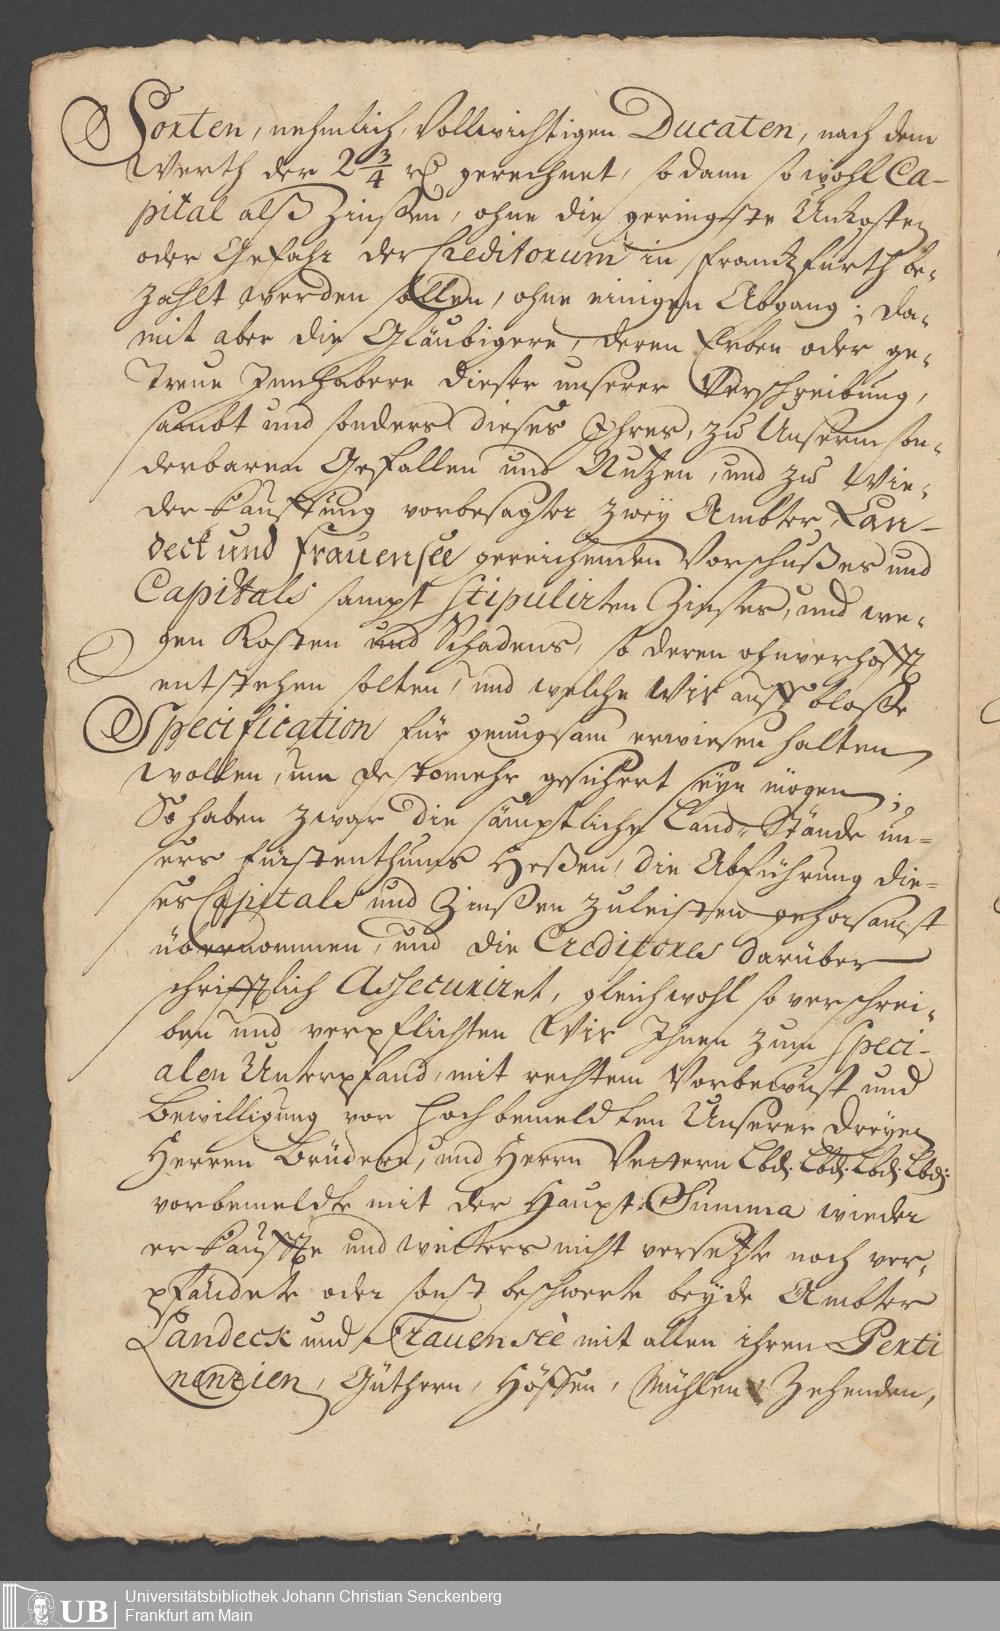 Sorten, nehmlich, Vollwichtigen Ducaten, nach dem
Werth der 2 3/4 rth gerechnet, so dann so wohl Ca-
pital alß Zinßen, ohne die geringste Unkosten
oder Gefahr der Creditorum in Franckfurth be-
zahlt werden sollen, ohne einigen Abgang; da-
mit aber die Gläubigere, deren Erben oder ge-
treue Innhabere dieser unserer Verschreibung,
sambt und sonders dieses Ihres, zu Unserm son-
derbaren Gefallen und Nutzen, und zu Wie-
der kauffung vorbesagter zwey Ambter Lan-
deck und Frauensee gereichenden Vorschußes und
Capitals sampt stipulirten Zinses, und we-
gen Kosten und Schadens, so deren ohnverhofft
entstehen solten, und welche Wir auff bloße
Specification für genugsam erwiesen halten
wollen, um destomehr gesichert seyn mögen;
So haben zwar die sämptliche Land-Stände un-
sers Fürstenthums Heßen, die Abführung die-
ses Capitals und Zinßen zuleisten gehorsamst
übernommen, und die Creditores darüber
schrifftlich Assecuriret, gleichwohl so verschrei-
ben und verpflichten Wir Ihnen zum speci-
alen Unterpfand, mit rechtem Vorbewust und
Bewilligung vor hochbemeldten Unserer dreyen
Herren Brüdern, und Herrn Vettern Lbd. Lbd. Lbd. Lbd.
vorbemeldte mit der Haupt-Summa wieder
erkauffte und weiters nicht versetzte noch ver-
pfändete oder sonst beschwerte beyde Ambter
Landeck und Frauensée mit allen ihren Perti
nenzien, Güthern, Höffen, Mühlen, Zehenden,
UB
Universitätsbibliothek Johann Christian Senckenberg
Frankfurt am Main